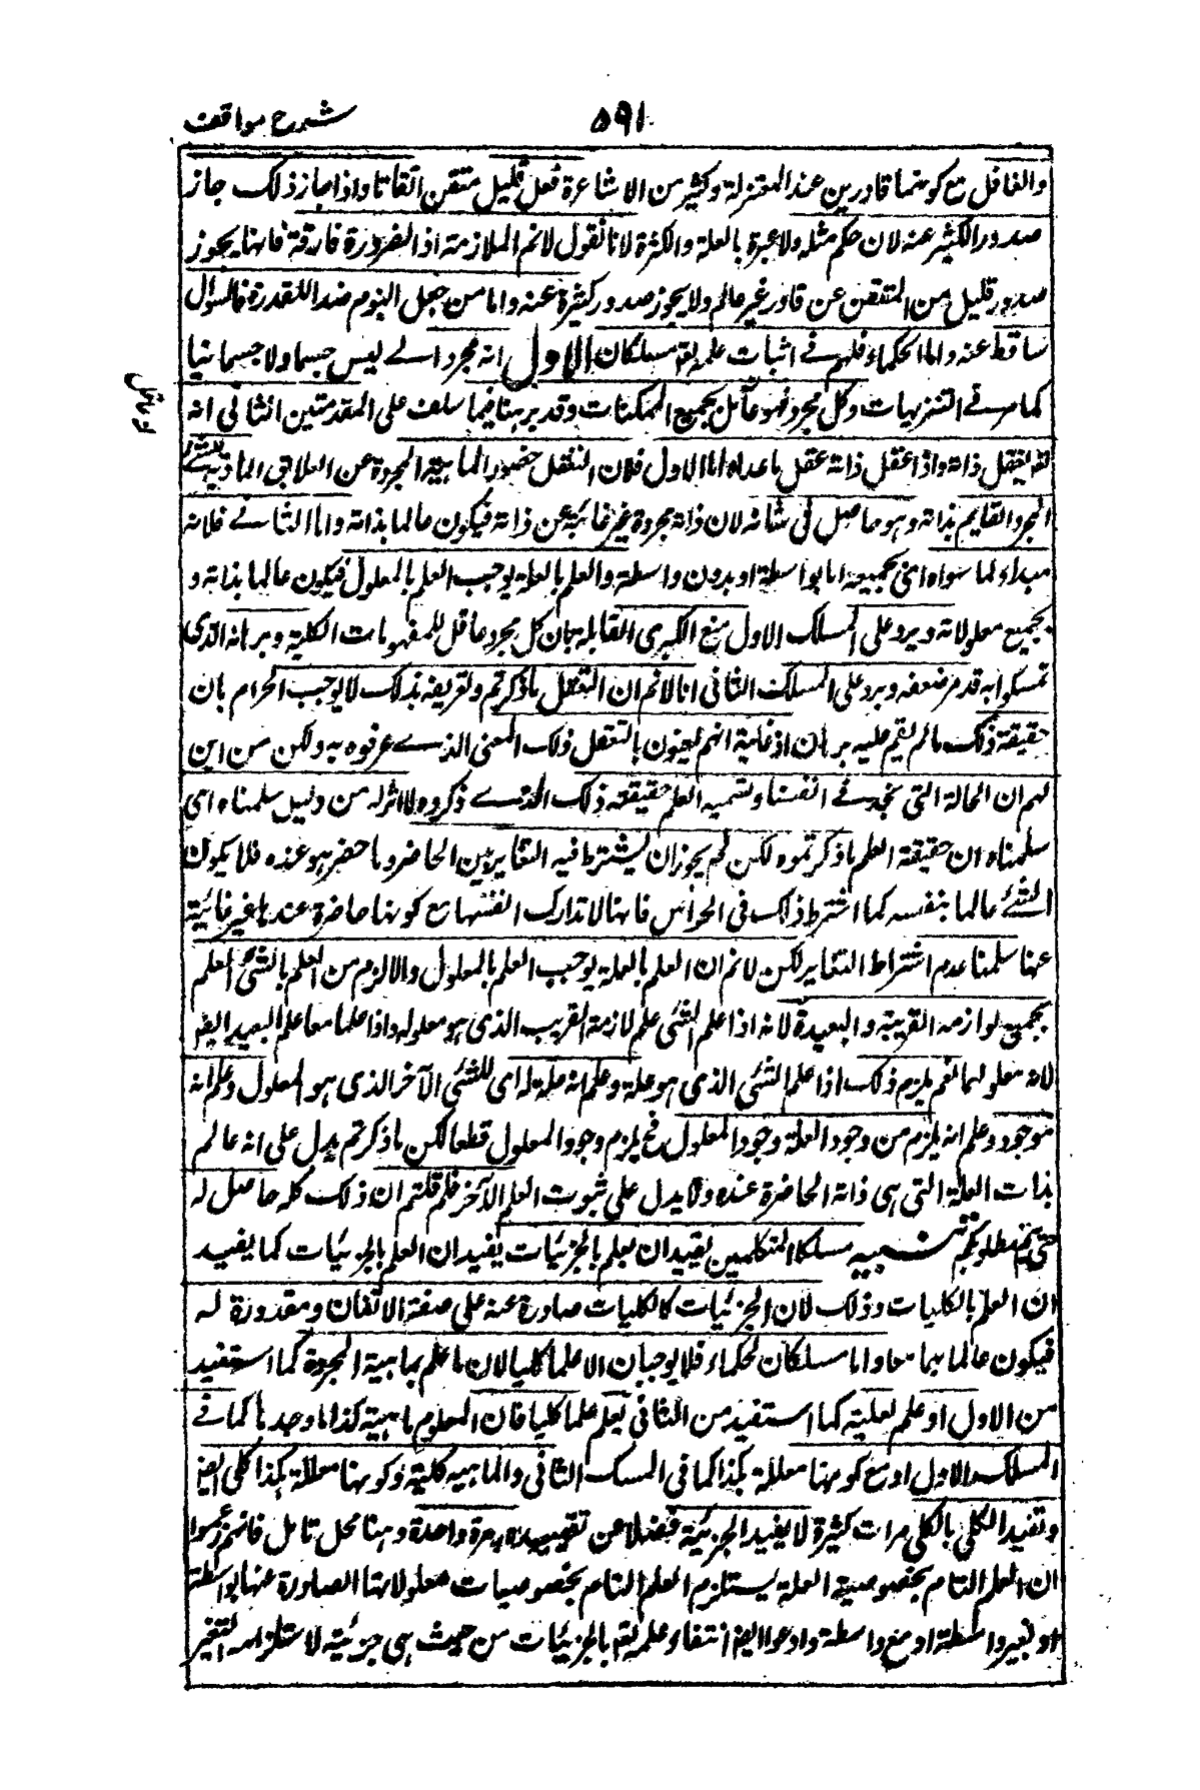 ۵۹۱ شرح مواقف
والغافل مع كونهما قادرين عند المعتزلة وكثير من الاشاعرة فعل قليل متقن اتفاقا واذا جاز ذلك جاز
صدور الكثير عنه لان حكم مثله ولا عبرة بالعلة والكثرة لانا نقول لانم الملازمة اذ الضرورة فارقة فانها يجوز
صدور قليل من المتقن عن قادر غير عالم ولا يجوز صدور كثيرة عنه واما من جعل النوم ضد اللقدرة فالسؤال
ساقط عنه واما الحكماء فلهم فے اثبات علمه تع مسلكان الاول انه مجرد اے ليس جسما ولا جسمانيا
كما مر فے التنزيهات وكل مجرد فهو عاقل بجميع الممكنات وقد برهنا فيما سلف على المقدمتين الثانى انه
تع يعقل ذاته واذا عقل ذاته عقل ما عداه اما الاول فلان التعقل حضور الماهية المجردة عن العلائق المادية للشئے
المجرد القايم بذاته وهو حاصل فى شانه لان ذاته مجردة غير غائبة عن ذاته فيكون عالما بذاته واما الثانے فلانه
مبداء لما سواه اى بجميعه اما بواسطة او بدون واسطة والعلم بالعلة يوجب العلم بالمعلول فيكون عالما بذاته و
بجميع معلولاته ويرد على المسلك الاول منع الكبرى القابلة بان كل مجرد عاقل للمفهومات الكلية وبرهانه الذى
تمسكوا به قد مر ضعفه ويرد على المسلك الثانى انا لانم ان التعقل ما ذكرتم وتعريفه بذلك لا يوجب الجزم بان
حقيقة ذلك مالم يقم عليه برهان اذ غايته انهم يعنون بالتعقل ذلك المعنى الذے عرفوه به ولكن من اين
لهم ان الحالة التى نجد فے انفسنا ونسميه العلم حقيقته ذلك الذے ذكروه لا اثر له من دليل سلمناه اى
سلمناه ان حقيقة العلم ما ذكرتموه لكن لم يجوز ان يشترط فيه التغاير بين الحاضر وما حضر هو عنده فلا يكون
الشئے عالما بنفسه كما اشترط ذلك فى الحواس فانها لا تدارك انفسها مع كونها حاضرة عندها غير غائبة
عنها سلمنا عدم اشتراط التغاير لكن لانم ان العلم بالعلة يوجب العلم بالمعلول والا لزم من العلم بالشئ العلم
بجميع لوازمه القريبة والبعيدة لانه اذا علم الشئ علم لازمه القريب الذى هو معلوله واذا علما معا علم البعيد ايضا
لانه معلولهما نعم يلزم ذلك اذا علم الشئ الذى هو علة وعلم انه علة له اى للشئ الآخر الذى هو المعلول وعلم انه
موجود وعلم انه يلزم من وجود العلة وجود المعلول فح يلزم وجود المعلول قطعا لكن ما ذكرتم يدل على انه عالم
بذات العلة التى هى ذاته الحاضرة عنده ولا يدل على ثبوت العلم الآخر فلم قلتم ان ذلك كله حاصل له
حتى يتم مطلوبكم تنبيه مسلكا المتكلمين يفيد ان يعلم بالجزئيات يفيد ان العلم بالجزئيات كما يفيد
ان العلم بالكليات وذلك لان الجزئيات كالكليات صادرة عنه على صفة الاتقان ومقدورة له
فيكون عالما بهما معا واما مسلكان لحكماء فلا يوجبان الا علما كليا لان ما علم بماهية المجردة كما استفيد
من الاول او علم لعلية كما استفيد من الثانى يعلم علما كليا فان المعلوم ماهية كذا اما وحدها كما فے
المسلك الاول او مع كونها معللة بكذا كما فى المسلك الثانى والماهيه كلية وكونها معللة بكذا كلى ايضا
وتقيد الكلى بالكلى مرات كثيرة لا يفيد الجزئية فضلا عن تقييده به مرة واحدة وهنا محل تامل فانهم زعموا
ان العلم التام بخصوصية العلة يستلزم العلم التام بخصوصيات معلولاتها الصادرة عنها بواسطة
او بغير واسطة او مع واسطة وادعوا ايضا انتفاء علمه تع بالجزئيات من حيث هى جزئية لاستلزامه التغير